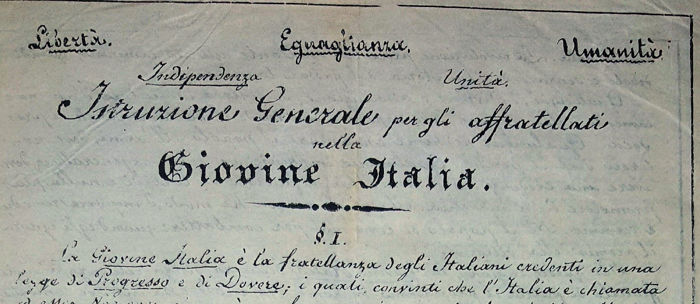 Libertà. Eguaglianza. Umanità
Indipendenza Unità.
Istruzione Generale per gli affratellati
nella
Giovine Italia.
§. I.
La Giovine Italia è la fratellanza degli Italiani credenti in una
legge di Progresso e di Dovere; i quali, convinti che l'Italia è chiamata